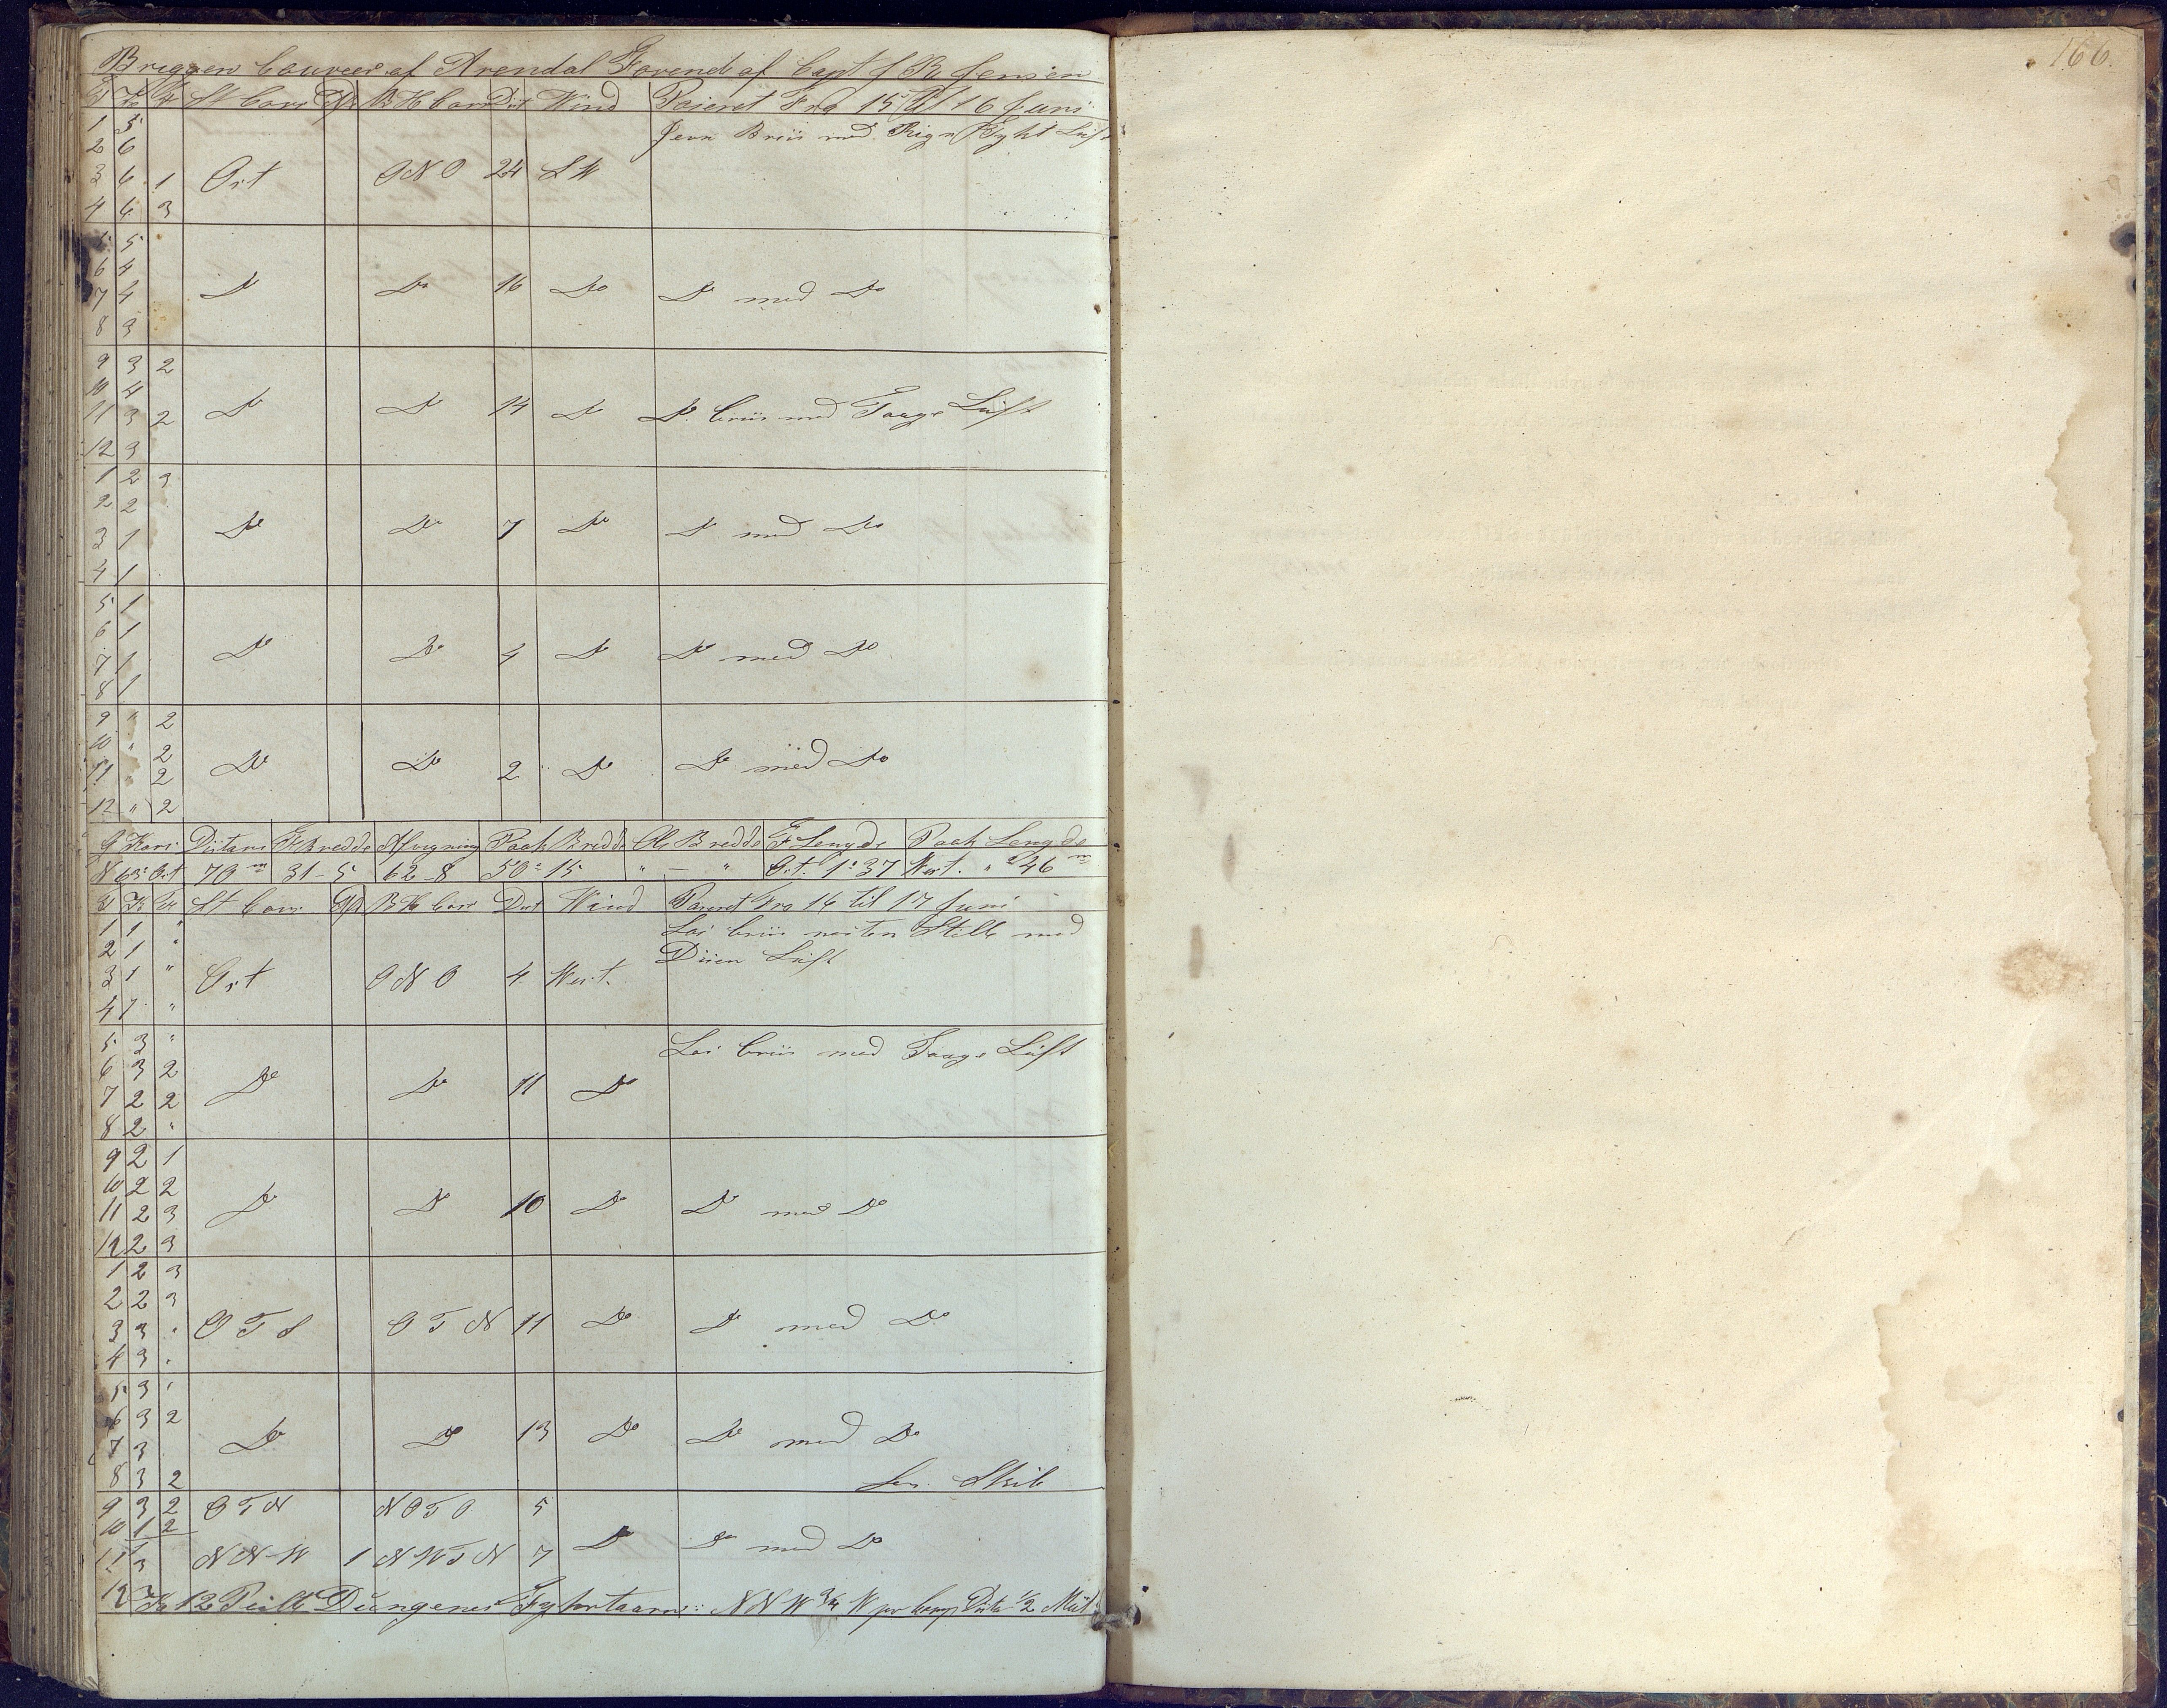 Briggen Courier af Arendal Förend af Capt J Ch Jensen
St Cours Afd B H Cours Dist Wind Passeret Fra 15 til 16 Juni
1 5 Jevn Briis med Regn Tykt Luft
2 6
3 6 1 Ost ONO 24 SW
4 6 3
5 5
6 4
7 4 Do Do 16 Do Do med Do
8 3
9 3 2
10 4
11 3 2 Do Do 14 Do Do briis med Taage Luft
12 3
1 2 3
2 2
3 1 Do Do 7 Do Do med Do
4 1
5 1
6 1
7 1 Do Do 4 Do Do med Do
8 1
9 " 2
10 " 2
11 " 2 Do Do 2 Do Do med Do
12 " 2
G Kurs Distans F Bredde Afvigning Paak Bredde Ob Bredde F Lengde Paak Lengde
N 63° Ost 70 m 31-5 62-8 50° 15 " — " Ost. 1° 37 West. " 46 m
St Cours Afd B H Cours Dist Wind Passeret Fra 16 til 17 Juni
1 1 " Lai briis nesten Stille med
2 1 " Diisen Luft
3 1 " Ost ONO 4 West.
4 1 "
5 3 " Lai briis med Taage Luft
6 3 2
7 2 2 Do Do 11 Do
8 2 "
9 2 1
10 2 2
11 2 3 Do Do 10 Do Do med Do
12 2 3
1 2 3
2 2 3
3 3 " O T S O T N 11 Do Do med Do
4 3 "
5 3 "
6 3 2
7 3 Do Do 13 Do Do med Do
8 3 2
9 3 2 O T N N O T O 5
10 1 2 Do Do med Do
11 3 NNW 1 N W T N 7
12 3 Kl 12 Peilte Dungenes Fyhrtaarn: NNW 3/4 W pr Comp Dista 1/2 Miil
166.